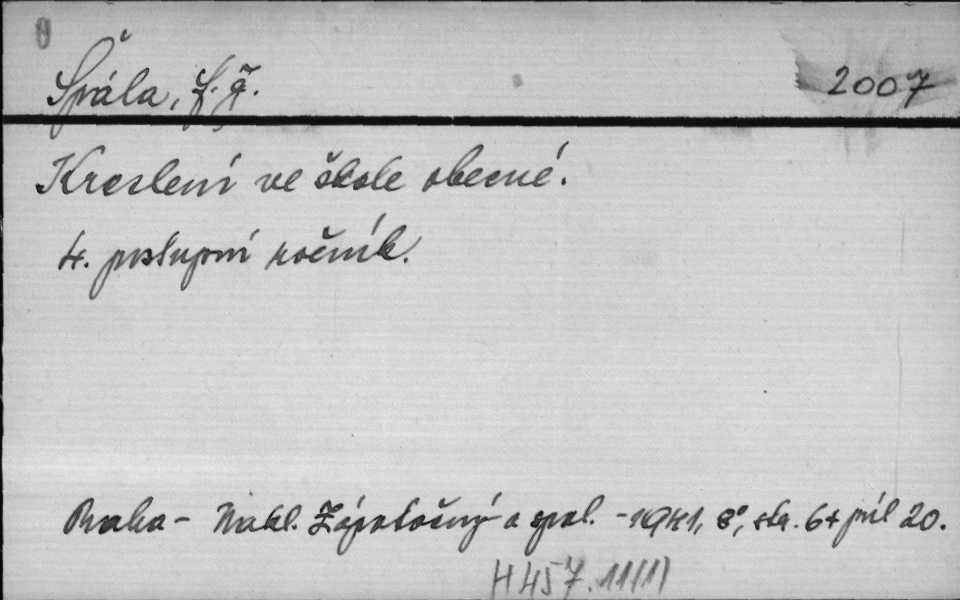 Špála, J. J.
2007
Kreslení ve škole obecné.
4. postupní ročník.
Praha - Nakl. Zápotočný a spol. - 1941, 8°, str. 6 + příl 20.
H 457.11(1)